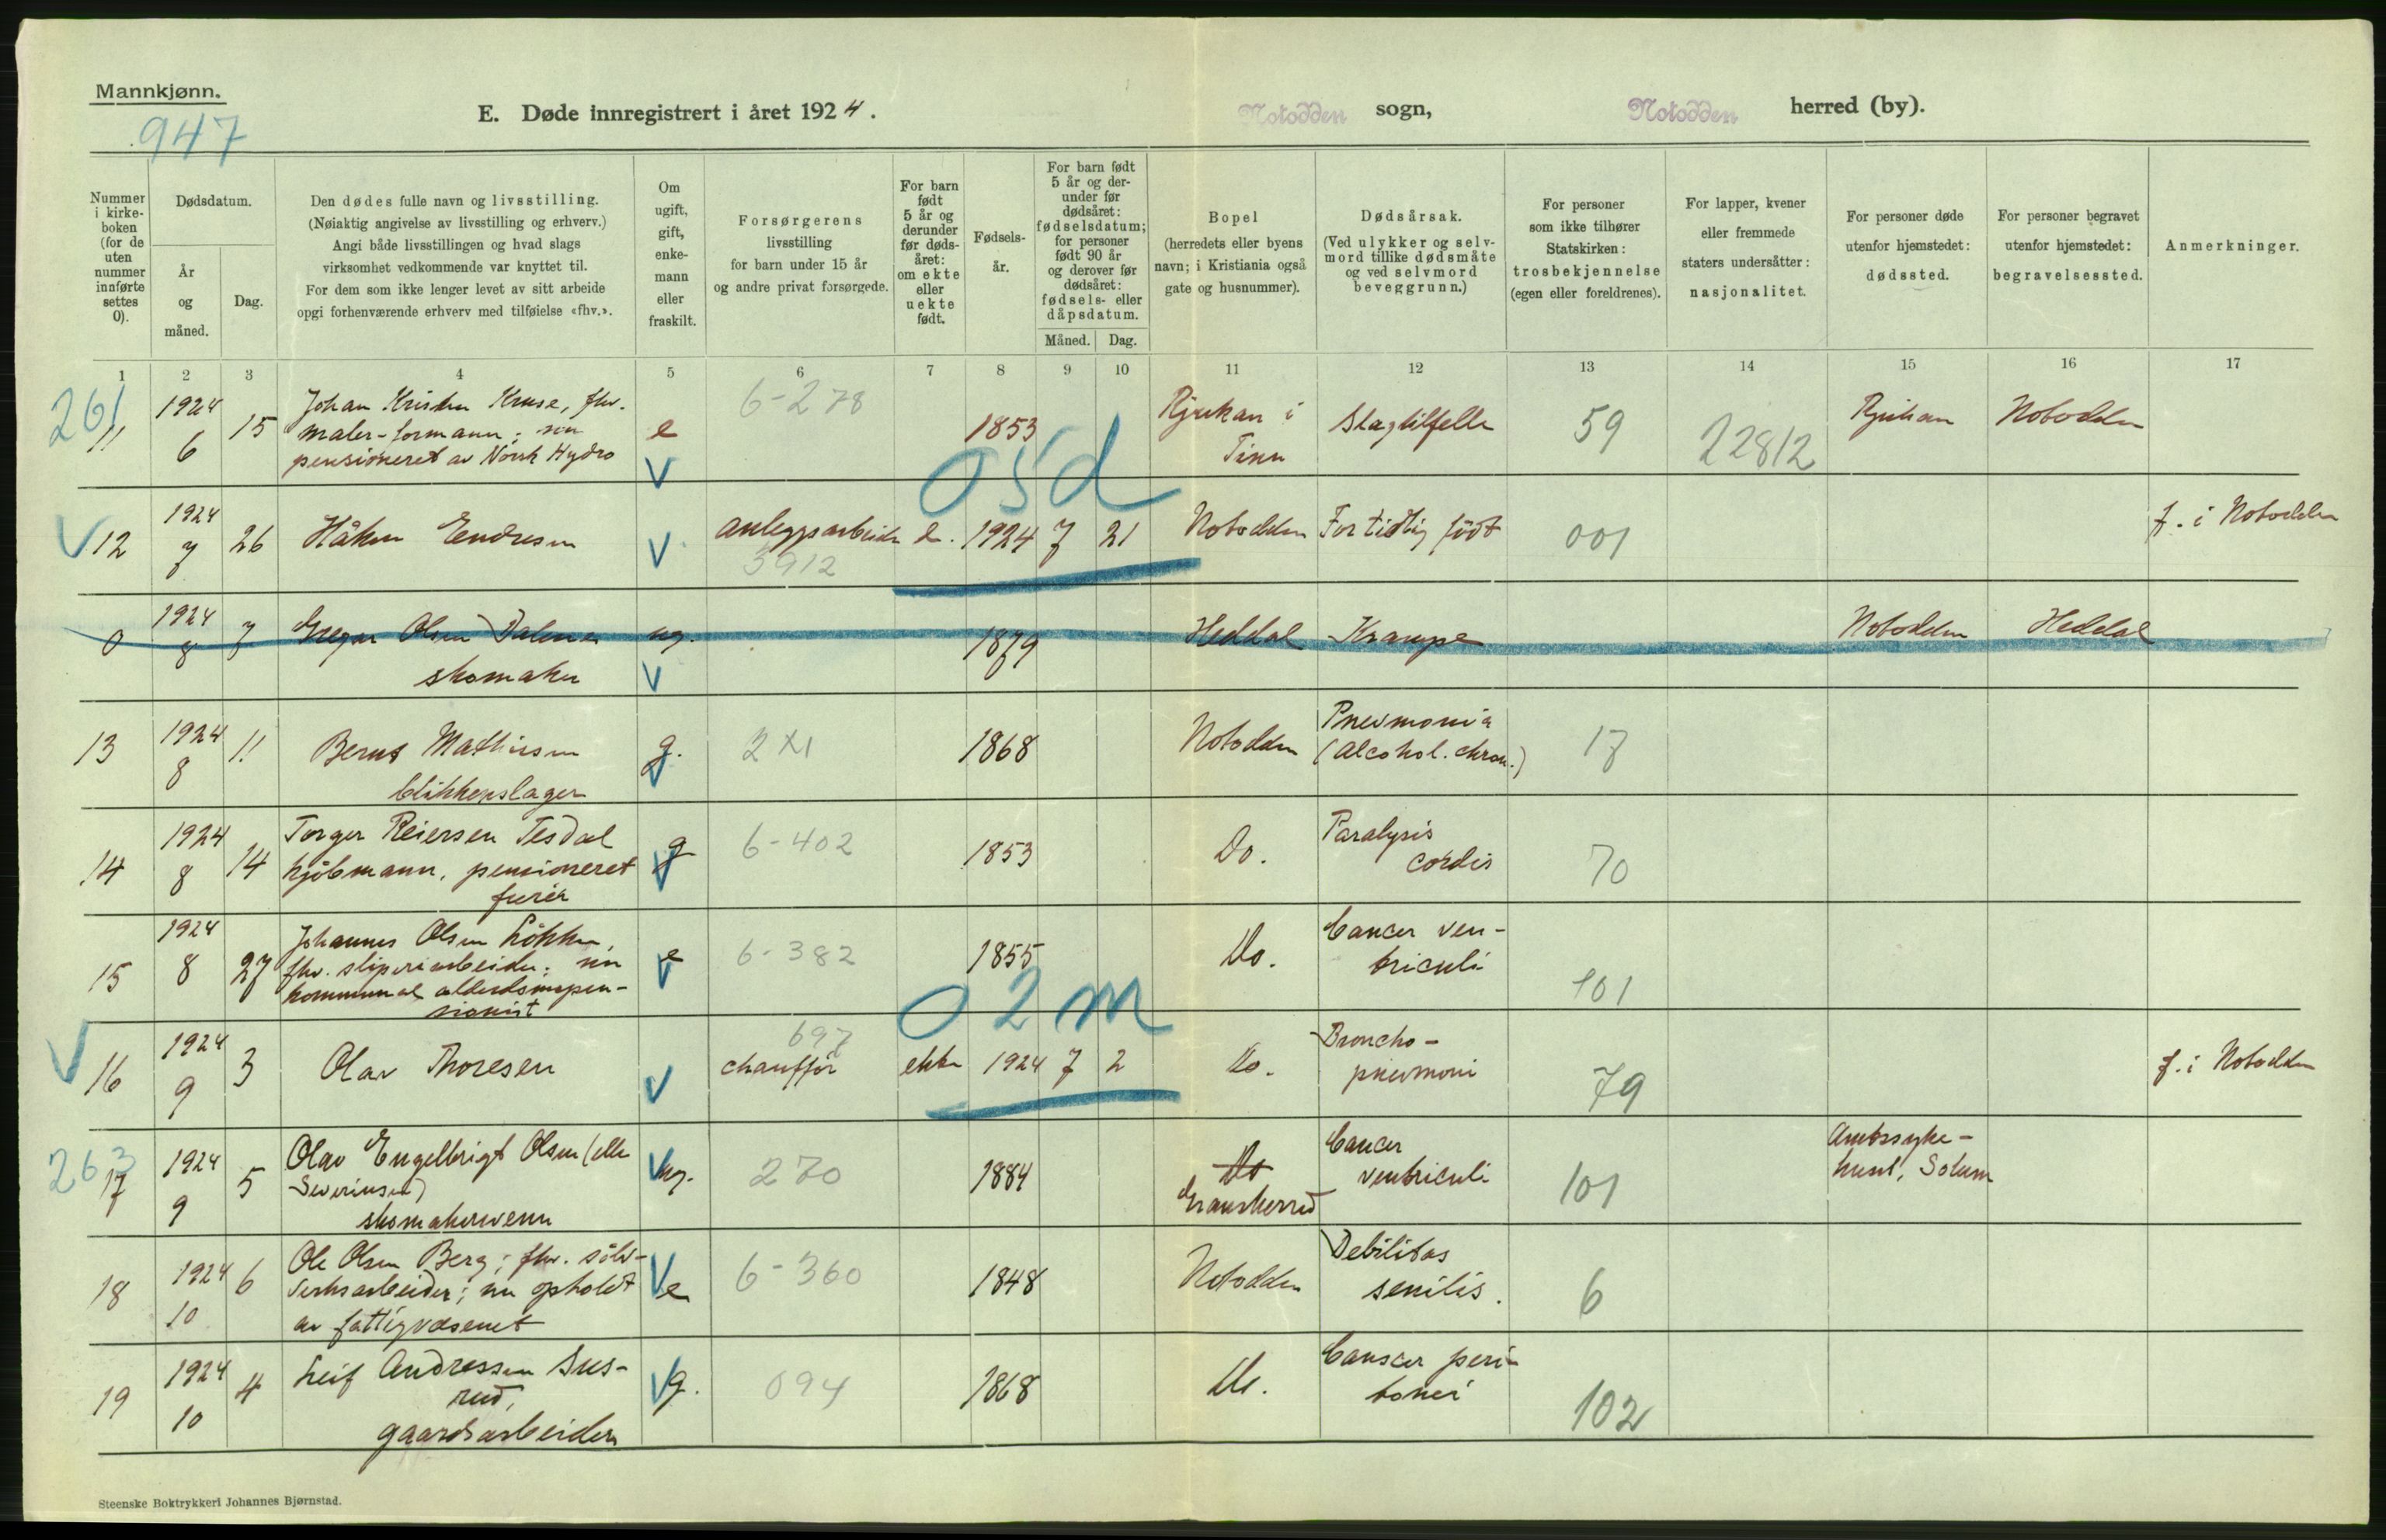 Mannkjønn.
947
E. Døde innregistrert i året 1924.
Notodden sogn,
Notodden herred (by).
Nummer i kirke-boken (for de uten nummer innførte settes 0).
Dødsdatum.
År og måned.
Dag.
Den dødes fulle navn og livsstilling.
(Nøiaktig angivelse av livsstilling og erhverv.)
Angi både livsstillingen og hvad slags
virksomhet vedkommende var knyttet til.
For dem som ikke lenger levet av sitt arbeide
opgi forhenværende erhverv med tilføielse «fhv.».
Om ugift, gift, enke-mann eller fraskilt.
Forsørgerens
livsstilling
for barn under 15 år
og andre privat forsørgede.
For barn født 5 år og derunder før døds-året: om ekte eller uekte født.
Fødsels-år.
For barn født 5 år og der-under før dødsåret: fødselsdatum; for personer født 90 år og derover før dødsåret: fødsels- eller dåpsdatum.
Måned.
Dag.
Bopel
(herredets eller byens
navn; i Kristiania også
gate og husnummer).
Dødsårsak.
(Ved ulykker og selv-
mord tillike dødsmåte
og ved selvmord
beveggrunn.)
For personer
som ikke tilhører
Statskirken:
trosbekjennelse
(egen eller foreldrenes).
For lapper, kvener
eller fremmede
staters undersåtter:
nasjonalitet.
For personer døde
utenfor hjemstedet:
dødssted.
For personer begravet
utenfor hjemstedet:
begravelsessted.
Anmerkninger.
1 2 3 4 5 6 7 8 9 10 11 12 13 14 15 16 17
261
11 1924 6 15 Johan Kristen Kruse, fhv.
maler-formann; nu
pensioneret av Norsk Hydro
e 6-278 1853 Rjukan i
Tinn
Slagtilfelle 59 22812 Rjukan Notodden
05d
12 1924 7 26 Håkon Endresen anleggsarbeider e. 1924 7 21 Notodden For tidlig født 001 f. i Notodden
5912
0 1924 8 7 Gregar Olsen Dalen ug. 1879 Heddal Krampe Notodden Heddal
skomaker
13 1924 8 11 Bernt Mathisen
blikkenslager
g. 2X1 1868 Notodden Pnevmonia
(alcohol. chron.)
17
14 1924 8 14 Torger Reiersen Tesdal
kjøbmann, pensioneret
furér
g 6-402 1853 Do. Paralysis
cordis
70
15 1924 8 27 Johannes Olsen Løkken,
fhv. sliperiarbeider; nu
kommunal alderdomspen-
sionist
e 6-382 1855 Do. Cancer ven-
triculi
101
02m
16 1924 9 3 Olav Thoresen 697
chauffør ekte 1924 7 2 Do. Broncho-
pnevmoni
79 f. i Notodden
263
17 1924 9 5 Olav Engelbrigt Olsen (eller
Severinsen)
skomakersvenn
ug. 270 1884 Do
Gransherred
Cancer
ventriculi
101 Amtssyke-
huset, Solum
18 1924 10 6 Ole Olsen Berg; fhv. sølv-
verksarbeider; nu opholdt
av fattigvæsenet
e 6-360 1848 Notodden Debilitas
senilis.
6
19 1924 10 4 Leif Andressen Sus-
rud,
gaardsarbeider
g. 094 1868 Do. Canscer peri-
tonei
102
Steenske Boktrykkeri Johannes Bjørnstad.